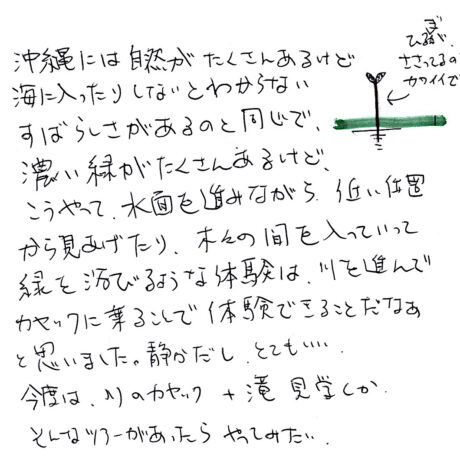 沖縄には自然がたくさんあるけど
海に入ったりしないとわからない
すばらしさがあるのと同じで、
濃い緑がたくさんあるけど、
こうやって、水面を進みながら、近い位置
から見あげたり、木々の間を入っていって
緑を浴びるような体験は、川を進んで
カヤックに乗ることで体験できることだなぁ
と思いました。静かだし、とても….
今度は、川のカヤック + 滝見学とか
そんなツアーがあったら やってみたい.
ささってるの
カワイイで